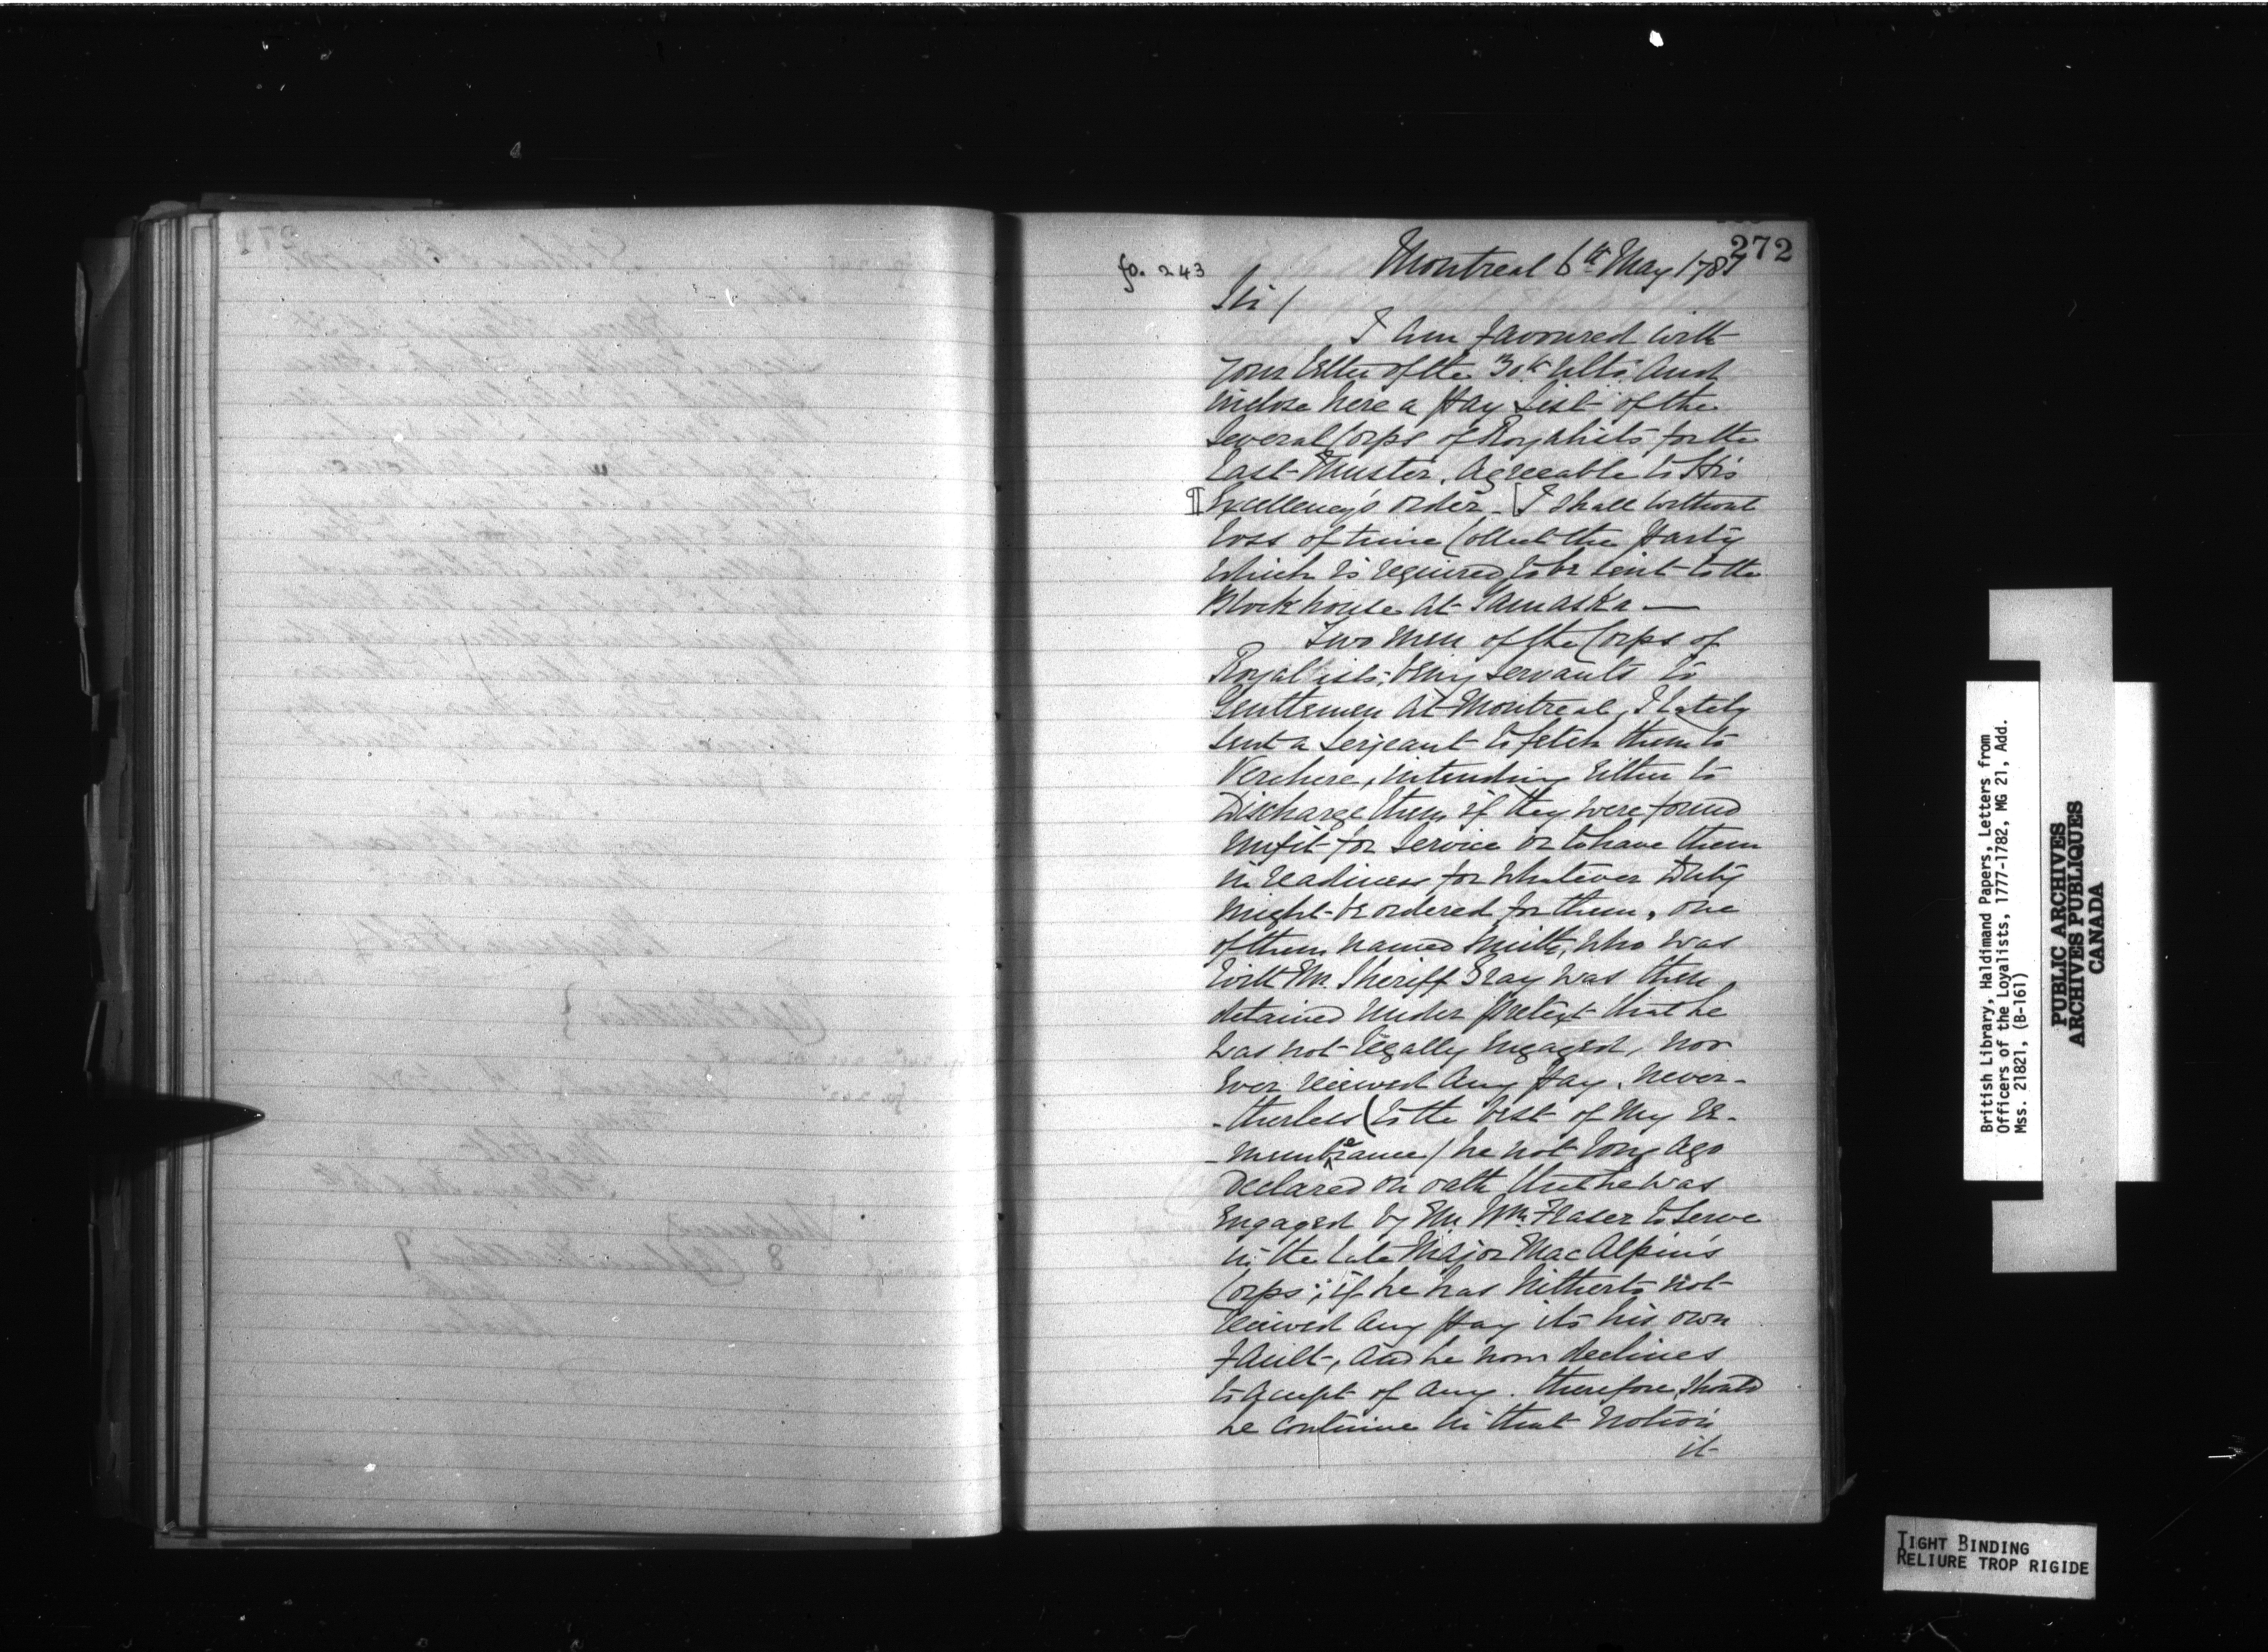 272
fo. 243
Montreal 6th May 1781
Sir /
I am favoured with
your letter of the 30th Ulto. And
inclose here a Pay List of the
Several Corps of Royalists for the
Last Muster. Agreeable to His
¶ Excellency's order - [I shall without
loss of time Collect the Party
which is required to be sent to the
Blockhouse at Yamaska —
Two Men of the Corps of
Royalists; being servants to
Gentlemen at Montreal, I lately
sent a Serjeant to fetch them to
Verchere, intending either to
Discharge them if they were found
Unfit for Service or to have them
in readiness for whatever Duty
might be ordered for them, one
of them named Smith, who was
with Mr. Sheriff Gray was then
detained under pretext that he
was not legally engaged, nor
ever received any Pay. never-
-therless (to the best of my re-
-membrance) he not long ago
declared on oath that he was
engaged by Mr. Wm. Fraser to serve
in the late Major Mac Alpin's
Corps; if he has hitherto not
received any Pay its his own
fault, and he now declines
to accept of any. therefore, should
he continue in that notion
it
British Library, Haldimand Papers, Letters from
Officers of the Loyalists, 1777-1782, MG 21, Add.
Mss. 21821, (B-161)
PUBLIC ARCHIVES
ARCHIVES PUBLIQUES
CANADA
TIGHT BINDING
RELIURE TROP RIGIDE